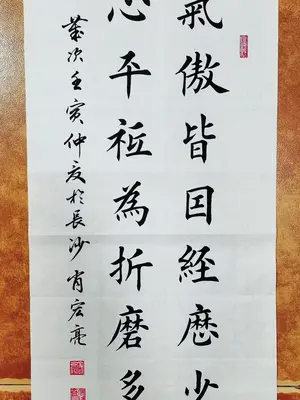 氣傲皆囙経歷少
心平祗為折磨多
歲次壬寅仲夏於長沙肖宏亮